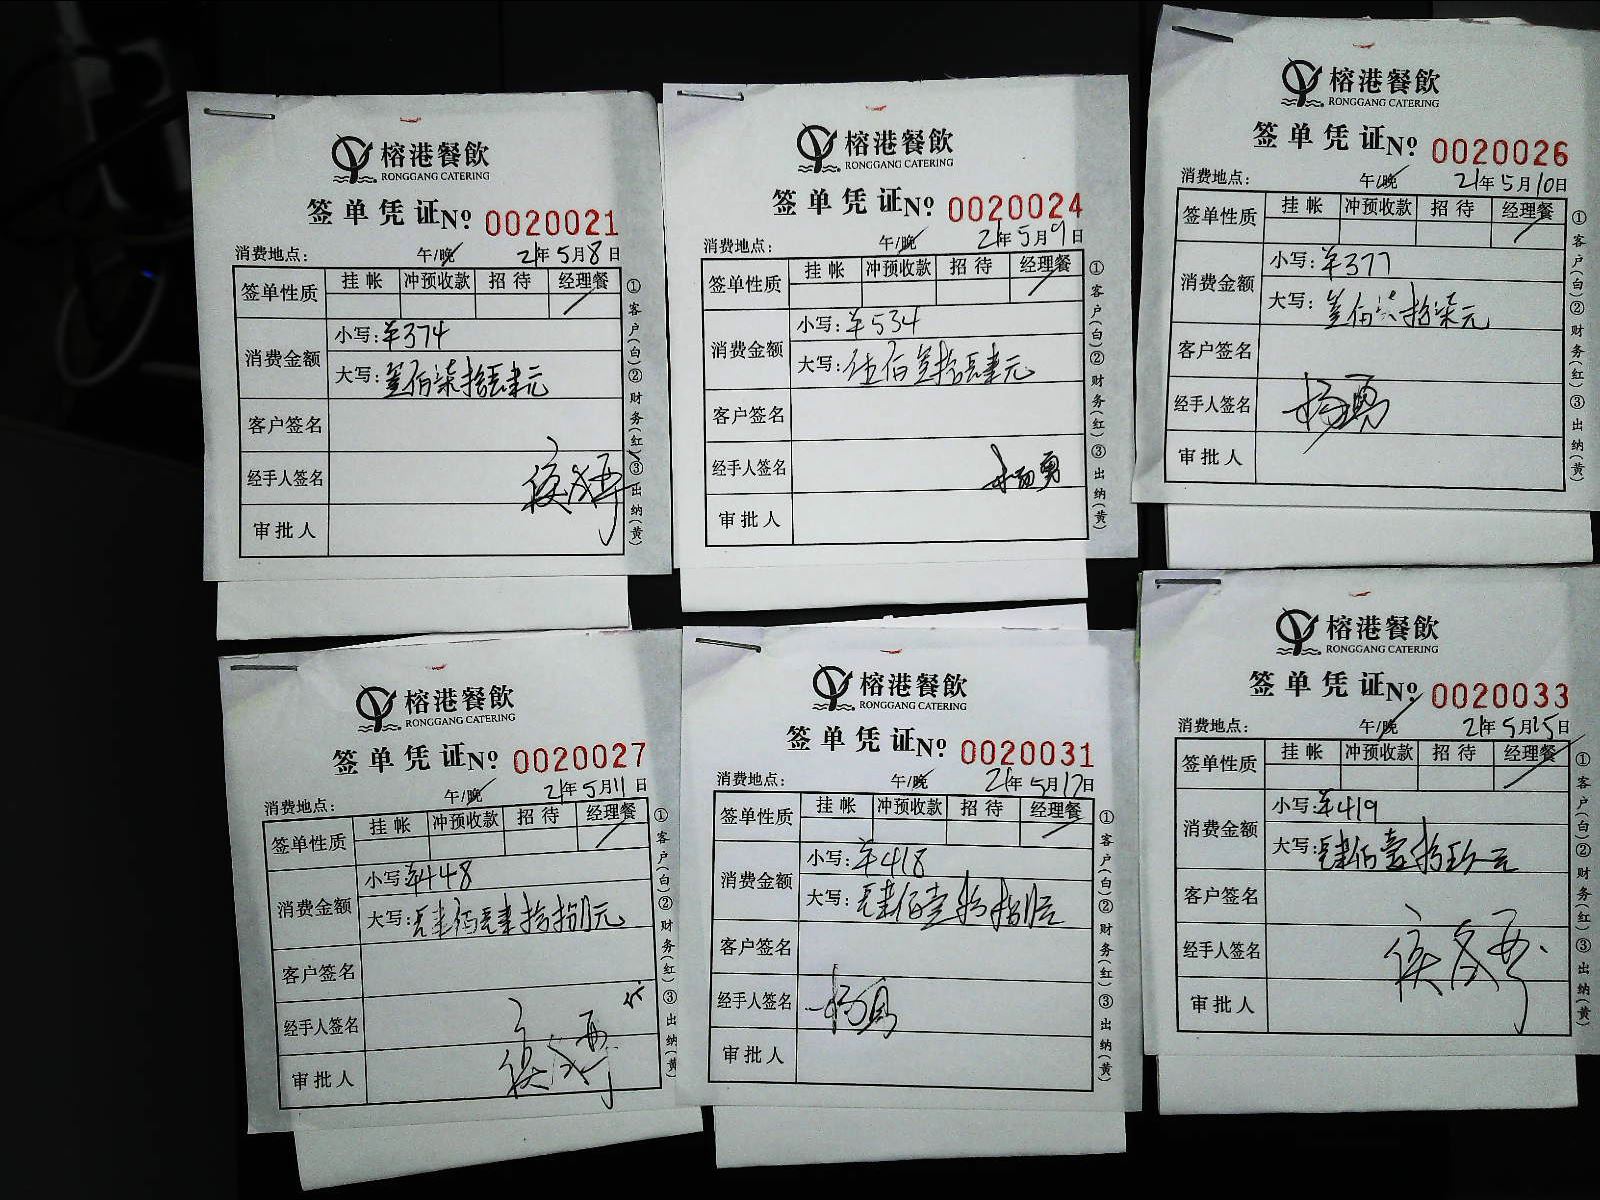 榕港餐飲
RONGGANG CATERING
签单凭证№ 0020021
消费地点： 午/晚 21年5月8日
签单性质 挂帐 冲预收款 招待 经理餐
消费金额
小写：￥374
大写：叁佰柒拾肆元
客户签名
经手人签名
审批人
①客户(白)②财务(红)③出纳(黄)
榕港餐飲
RONGGANG CATERING
签单凭证№ 0020024
消费地点： 午/晚 21年5月9日
签单性质 挂帐 冲预收款 招待 经理餐
消费金额
小写：￥534
大写：伍佰叁拾肆元
客户签名
经手人签名 杨勇
审批人
①客户(白)②财务(红)③出纳(黄)
榕港餐飲
RONGGANG CATERING
签单凭证№ 0020026
消费地点： 午/晚 21年5月10日
签单性质 挂帐 冲预收款 招待 经理餐
消费金额
小写：￥377
大写：叁佰柒拾柒元
客户签名
经手人签名 杨勇
审批人
①客户(白)②财务(红)③出纳(黄)
榕港餐飲
RONGGANG CATERING
签单凭证№ 0020027
消费地点： 午/晚 21年5月11日
签单性质 挂帐 冲预收款 招待 经理餐
消费金额
小写：￥448
大写：肆佰肆拾捌元
客户签名
经手人签名
审批人
①客户(白)②财务(红)③出纳(黄)
榕港餐飲
RONGGANG CATERING
签单凭证№ 0020031
消费地点： 午/晚 21年5月17日
签单性质 挂帐 冲预收款 招待 经理餐
消费金额
小写：￥418
大写：肆佰壹拾捌元
客户签名
经手人签名 杨勇
审批人
①客户(白)②财务(红)③出纳(黄)
榕港餐飲
RONGGANG CATERING
签单凭证№ 0020033
消费地点： 午/晚 21年5月15日
签单性质 挂帐 冲预收款 招待 经理餐
消费金额
小写：￥419
大写：肆佰壹拾玖元
客户签名
经手人签名
审批人
①客户(白)②财务(红)③出纳(黄)